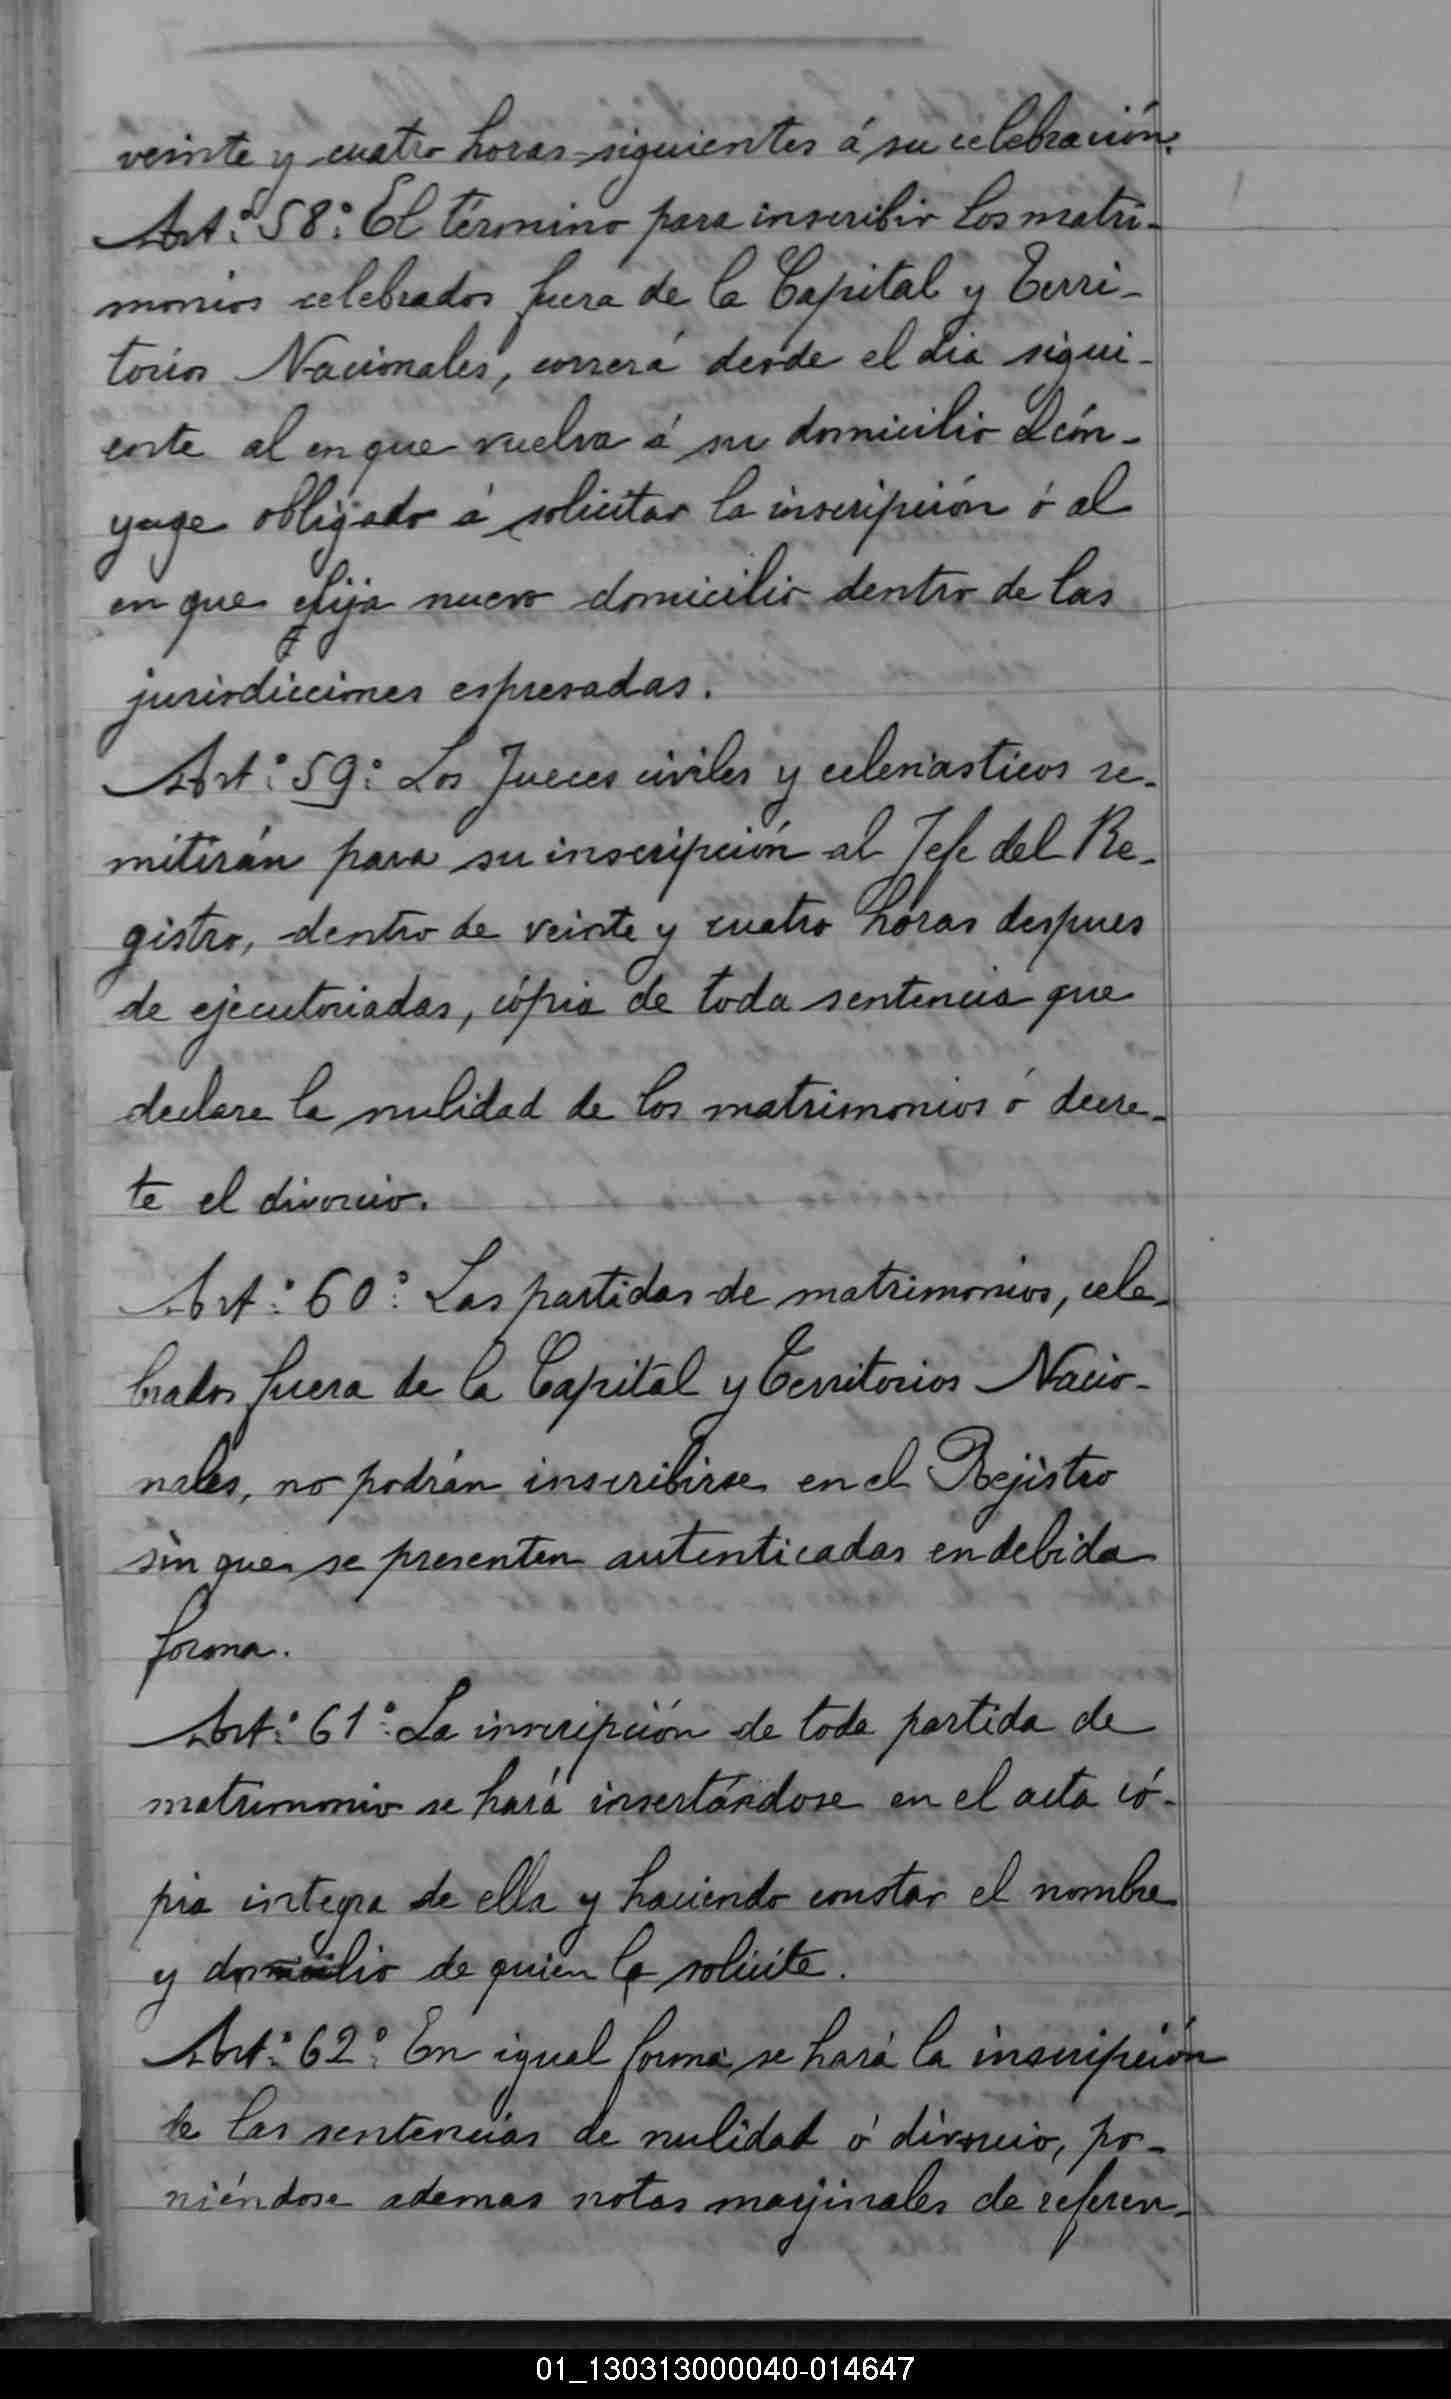 veinte y cuatro horas siguientes á su celebración.
Art.º 58.º El término para inscribir los matri-
monios celebrados fuera de la Capital y Terri-
torios Nacionales, correrá desde el dia sigui-
ente al en que vuelva á su domicilio el cón-
yuge obligado á solicitar la inscripción ó al
en que elija nuevo domicilio dentro de las
jurisdicciones espresadas.
Art.º 59.º Los Jueces civiles y eclesiasticos re-
mitirán para su inscripción al Jefe del Re-
gistro, dentro de veinte y cuatro horas despues
de ejecutoriadas, cópia de toda sentencia que
declare la nulidad de los matrimonios ó decre-
te el divorcio.
Art.º 60.º Las partidas de matrimonios, cele-
brados fuera de la Capital y Territorios Nacio-
nales, no podrán inscribirse en el Rejistro
sin que se presenten autenticadas en debida
forma.
Art.º 61.º La inscripción de toda partida de
matrimonio se hará insertándose en el acta có-
pia integra de ella y haciendo constar el nombre
y domicilio de quien la solicite.
Art.º 62.º En igual forma se hará la inscripción
de las sentencias de nulidad ó divorcio, po-
niéndose ademas notas marjinales de referen-
01_130313000040-014647